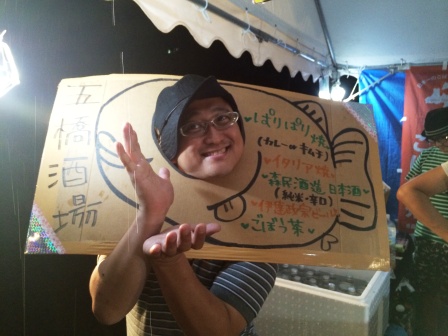 五橋酒場
ぱりぱり焼
(カレー or キムチ)
イタリア焼
森民酒造 日本酒
(純米・辛口)
伊達政宗ビール
ごぼう茶